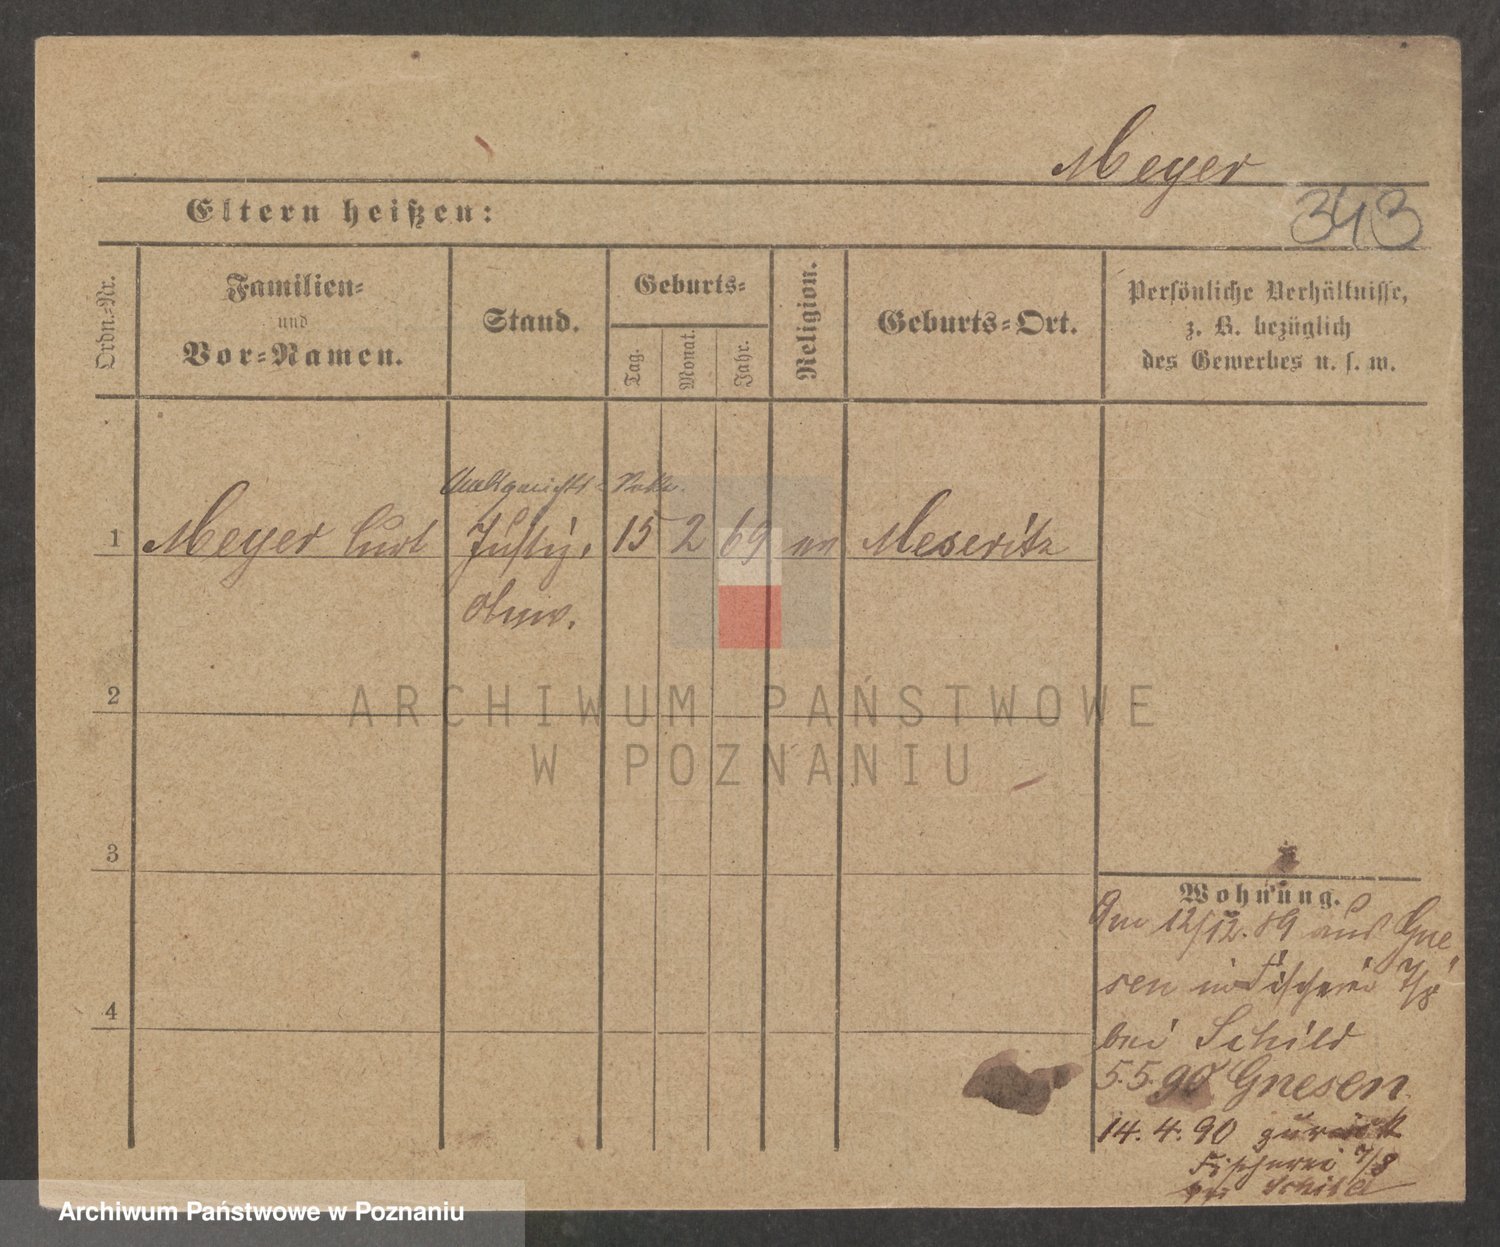 Meyer
343
Eltern heißen:
Ordn.-Nr.
Familien-
und
Vor-Namen.
Stand.
Geburts-
Tag.
Monat.
Jahr.
Religion.
Geburts-Ort.
Persönliche Verhältnisse,
z. B. bezüglich
des Gewerbes u. s. w.
1 Meyer Curt Justiz. 15 2 69 Meseritz
2
ARCHIWUM PAŃSTWOWE
W POZNANIU
3
Wohnung.
Am 12/12.89 aus Gne
sen in Fischerei 7/8
bei Schild
4
5.5.90 Gnesen
14.4.90 zurück
Fischerei 7/8
bei Schild
Archiwum Państwowe w Poznaniu